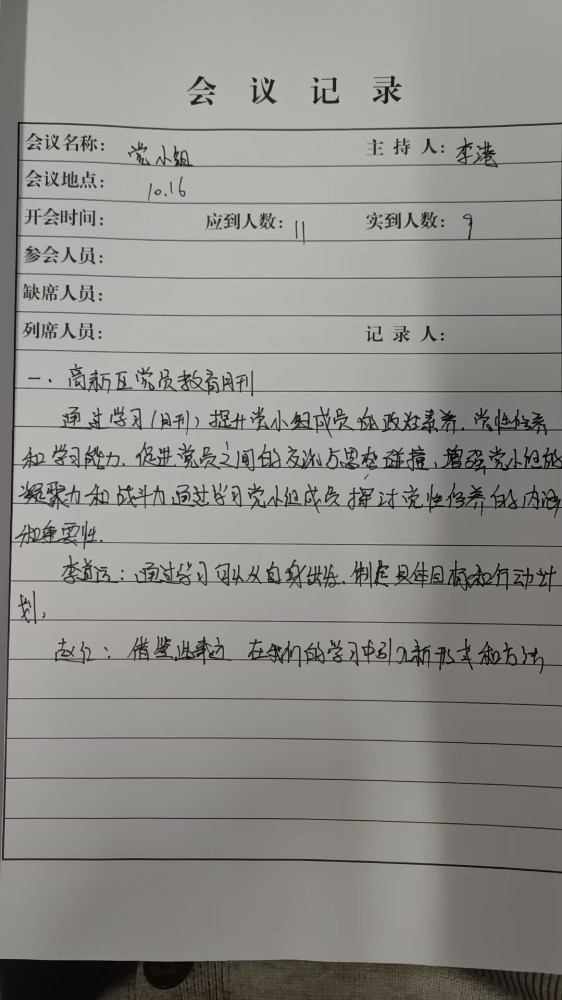 会议记录
会议名称: 党小组 主持人: 李港
会议地点: 10.16
开会时间: 应到人数: 11 实到人数: 9
参会人员:
缺席人员:
列席人员: 记录人:
一、高新区党员教育月刊
通过学习(月刊)提升党小组成员的政治素养、党性修养
和学习能力.促进党员之间的交流与思想碰撞,增强党小组的
凝聚力和战斗力,通过学习党小组成员探讨党性修养的内涵
和重要性.
李道远:通过学习可以从自身出发.制定具体目标和行动计
划。
赵仁:借鉴 在我们的学习中引入新形式和方法